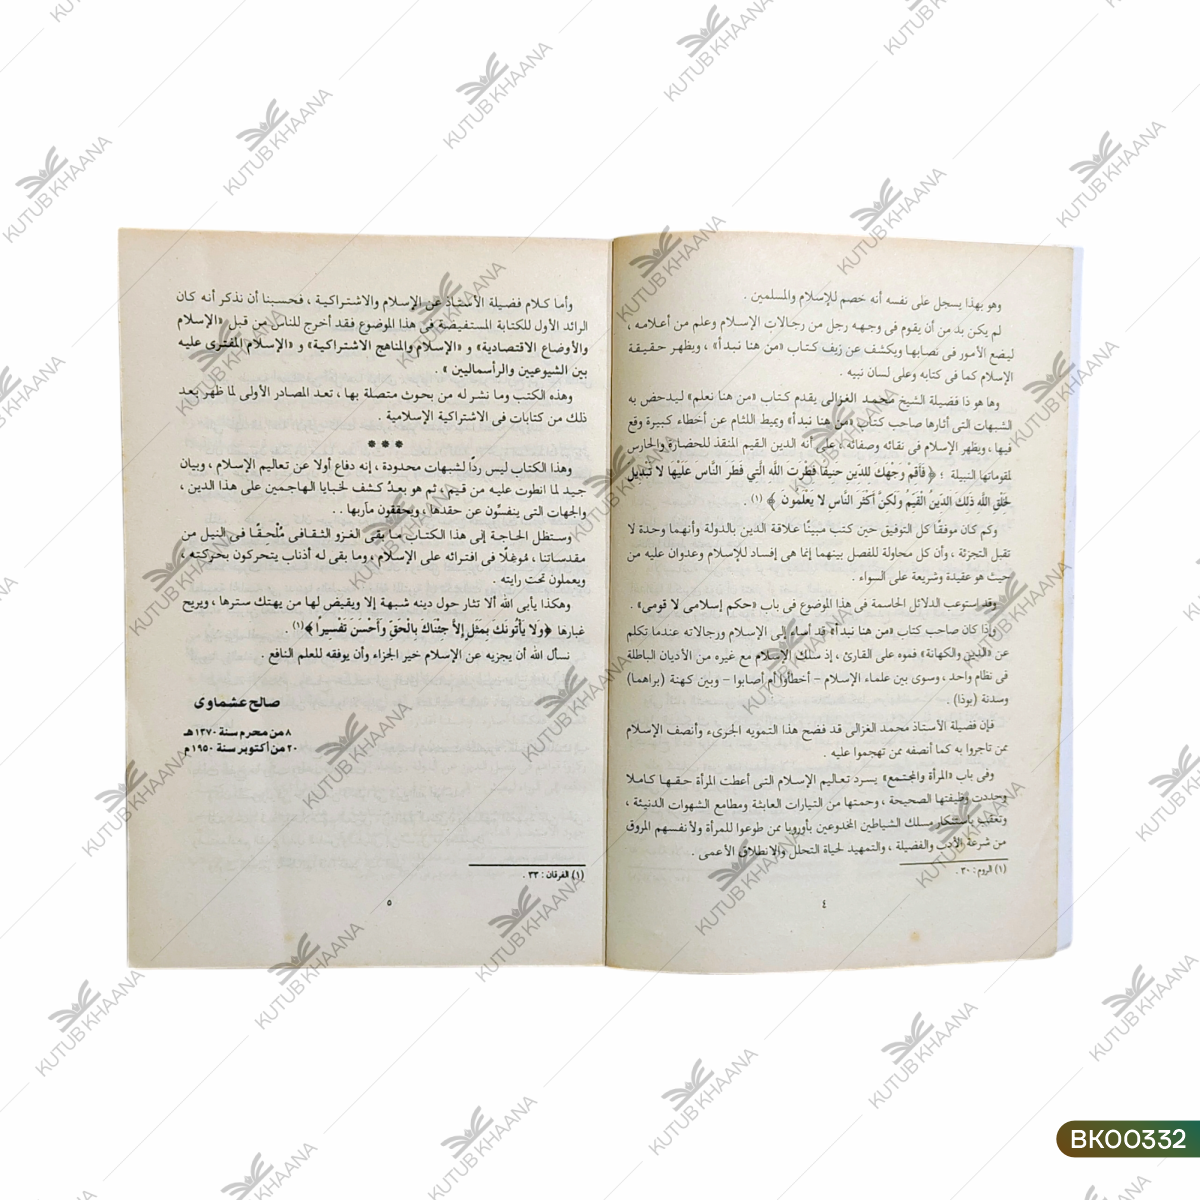 وهو بهذا يسجل على نفسه أنه خصم للإسلام والمسلمين .
لم يكن بد من أن يقوم فى وجهه رجل من رجالات الإسلام وعلم من أعلامه ،
ليضع الأمور فى نصابها ويكشف عن زيف كتاب «من هنا نبدأ» ، ويظهر حقيقة
الإسلام كما فى كتابه وعلى لسان نبيه .
وها هو ذا فضيلة الشيخ محمد الغزالى يقدم كتاب «من هنا نعلم» ليدحض به
الشبهات التى أثارها صاحب كتاب «من هنا نبدأ» ويميط اللثام عن أخطاء كبيرة وقع
فيها ، ويظهر الإسلام فى نقائه وصفائه ، على أنه الدين القيم المنقذ للحضارة والحارس
لمقوماتها النبيلة ؛ ﴿ فَأَقِمْ وَجْهَكَ لِلدِّينِ حَنِيفًا فِطْرَتَ اللَّهِ الَّتِي فَطَرَ النَّاسَ عَلَيْهَا لا تَبْدِيلَ
لِخَلْقِ اللَّهِ ذَلِكَ الدِّينُ الْقَيِّمُ وَلَكِنَّ أَكْثَرَ النَّاسِ لا يَعْلَمُونَ ﴾ (١) .
وكم كان موفقًا كل التوفيق حين كتب مبينًا علاقة الدين بالدولة وأنهما وحدة لا
تقبل التجزئة ، وأن كل محاولة للفصل بينهما إنما هى إفساد للإسلام وعدوان عليه من
حيث هو عقيدة وشريعة على السواء .
وقد استوعب الدلائل الحاسمة فى هذا الموضوع فى باب «حكم إسلامى لا قومى» .
وإذا كان صاحب كتاب «من هنا نبدأ» قد أساء إلى الإسلام ورجالاته عندما تكلم
عن «الدين والكهانة» فموه على القارئ ، إذ سلك الإسلام مع غيره من الأديان الباطلة
فى نظام واحد ، وسوى بين علماء الإسلام - أخطأوا أم أصابوا - وبين كهنة (براهما)
وسدنة (بوذا) .
فإن فضيلة الأستاذ محمد الغزالى قد فضح هذا التمويه الجرىء وأنصف الإسلام
ممن تاجروا به كما أنصفه ممن تهجموا عليه .
وفى باب «المرأة والمجتمع» يسرد تعاليم الإسلام التى أعطت المرأة حقها كاملا
وحددت وظيفتها الصحيحة ، وحمتها من التيارات العابثة ومطامع الشهوات الدنيئة ،
وتعقب باستنكار مسلك الشياطين المخدوعين بأوروبا ممن طوعوا للمرأة ولأنفسهم المروق
من شرعة الأدب والفضيلة ، والتمهيد لحياة التحلل والانطلاق الأعمى .
(١) الروم : ٣٠ .
٤
وأما كلام فضيلة الأستاذ عن الإسلام والاشتراكية ، فحسبنا أن نذكر أنه كان
الرائد الأول للكتابة المستفيضة فى هذا الموضوع فقد أخرج للناس من قبل «الإسلام
والأوضاع الاقتصادية» و «الإسلام والمناهج الاشتراكية» و «الإسلام المفترى عليه
بين الشيوعيين والرأسماليين » .
وهذه الكتب وما نشر له من بحوث متصلة بها ، تعد المصادر الأولى لما ظهر بعد
ذلك من كتابات فى الاشتراكية الإسلامية .
***
وهذا الكتاب ليس ردًا لشبهات محدودة ، إنه دفاع أولا عن تعاليم الإسلام ، وبيان
جيد لما انطوت عليه من قيم ، ثم هو بعدُ كشف لخبايا الهاجمين على هذا الدين ،
والجهات التى ينفسِّون عن حقدها ، ويحققون مآربها . .
وستظل الحاجة إلى هذا الكتاب ما بقى الغزو الثقافى مُلْحِفًا فى النيل من
مقدساتنا ، مُوغِلًا فى افترائه على الإسلام ، وما بقى له أذناب يتحركون بحركته ،
ويعملون تحت رايته .
وهكذا يأبى الله ألا تثار حول دينه شبهة إلا ويقيض لها من يهتك سترها ، ويريح
غبارها ﴿وَلا يَأْتُونَكَ بِمَثَلٍ إِلاَّ جِئْنَاكَ بِالْحَقِّ وَأَحْسَنَ تَفْسِيرًا ﴾(١) .
نسأل الله أن يجزيه عن الإسلام خير الجزاء وأن يوفقه للعلم النافع .
صالح عشماوى
٨ من محرم سنة ١٣٧٠ هـ
٢٠ من أكتوبر سنة ١٩٥٠ م
(١) الفرقان : ٣٣ .
٥
KUTUB KHAANA
BK00332